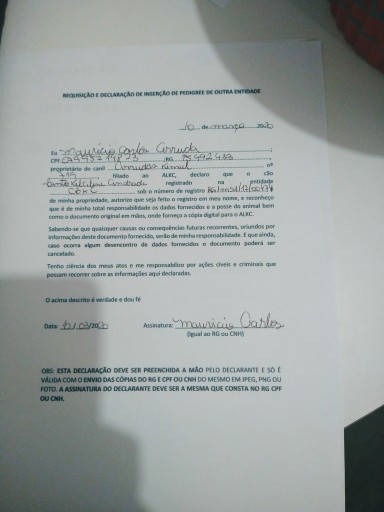 REQUISIÇÃO E DECLARAÇÃO DE INSERÇÃO DE PEDIGREE DE OUTRA ENTIDADE
10 de março 2020
Eu Mauricio Carlos Corruda,
CPF RG
proprietário de canil Corrudas Kennel nº
filiado ao ALKC, declaro que o cão
registrado na entidade
sob o número de registro
de minha propriedade, autorizo que seja feito o registro em meu nome, e reconheço
que é de minha total responsabilidade os dados fornecidos e a posse do animal bem
como o documento original em mãos, onde forneço a cópia digital para o ALKC.
Sabendo-se que quaisquer causas ou consequências futuras recorrentes, oriundos por
informações deste documento fornecido, serão de minha responsabilidade. E que ainda,
caso ocorra algum desencontro de dados fornecidos o documento poderá ser
cancelado.
Tenho ciência dos meus atos e me responsabilizo por ações cíveis e criminais que
possam recorrer sobre as informações aqui declaradas.
O acima descrito é verdade e dou fé
Data: 10/03/2020 Assinatura: Mauricio Carlos
(Igual ao RG ou CNH)
OBS: ESTA DECLARAÇÃO DEVE SER PREENCHIDA A MÃO PELO DECLARANTE E SÓ É
VÁLIDA COM O ENVIO DAS CÓPIAS DO RG E CPF OU CNH DO MESMO EM JPEG, PNG OU
FOTO. A ASSINATURA DO DECLARANTE DEVE SER A MESMA QUE CONSTA NO RG CPF
OU CNH.